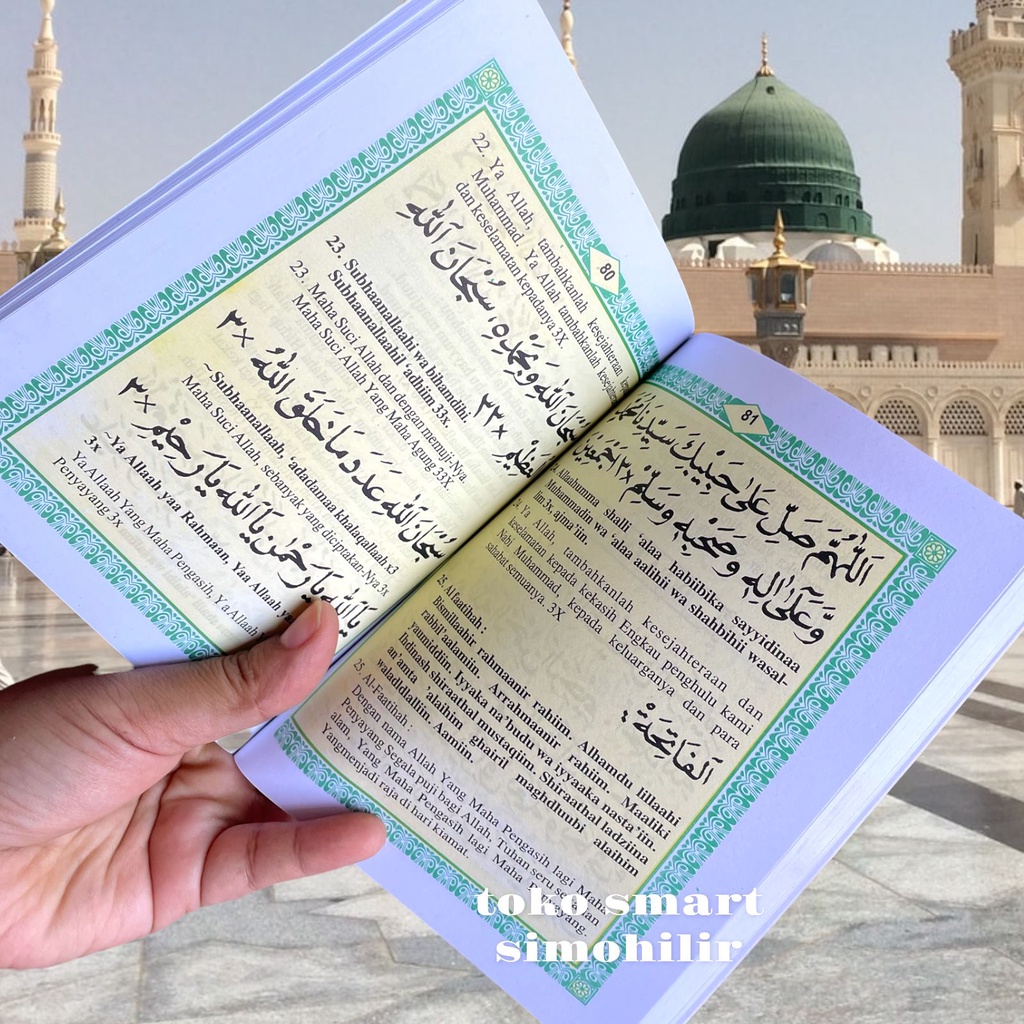 80
22. Ya Allah, tambahkanlah kesejahteraan
Muhammad. Ya Allah tambahkanlah
dan keselamatan kepadanya 3X
سُبْحَانَ اللهِ وَبِحَمْدِهِ، سُبْحَانَ اللهِ
×٣٣
23. Subhaanallaahi wa bihamdihi
Subhaanallaahil 'adhiim 33x.
23. Maha Suci Allah dan dengan memuji-Nya.
Maha Suci Allah Yang Maha Agung 33X
سُبْحَانَ اللهِ عَدَدَ مَا خَلَقَ اللهُ ×٣
~Subhaanallaah, 'adadama khalaqallaah x3
Maha Suci Allah, sebanyak yang diciptakan-Nya 3x
يَا اَللهُ يَا رَحْمٰنُ يَا اَللهُ يَا رَحِيْمُ ×٣
~Ya Allaah yaa Rahmaan, Yaa Allaah
3x
Ya Allaah Yang Maha Pengasih, Ya Allaah
Penyayang 3x
81
اَللّٰهُمَّ صَلِّ عَلَى حَبِيْبِكَ سَيِّدِنَا مُحَمَّدٍ
وَعَلَى اٰلِهِ وَصَحْبِهِ وَسَلِّمْ ×٣ اَجْمَعِيْنَ
Allaahumma shalli 'alaa habiibika sayyidinaa
Muhammadin wa 'alaa aalihii wa shahbihii wasal-
lim 3x, ajma'iin.
Ya Allah, tambahkanlah kesejahteraan dan
keselamatan kepada kekasih Engkau penghulu kami
Nabi Muhammad, kepada keluarganya dan para
sahabat semuanya. 3X
اَلْفَاتِحَةْ :
25. Al Faatihah :
Bismillaahir rahmaanir rahiim. Alhamdu lillaahi
rabbil'aalamiin. Arrahmaanir rahiim. Maaliki
yaumiddiin. Iyyaka na'budu wa iyyaaka nasta'iin.
Ihdinash shiraathal mustaqiim. Shiraathal ladziina
an'amta 'alaihim ghairil maghdhuubi alaihim
waladldlalliin. Aamiin.
25. Al-Faatihah :
Dengan nama Allah Yang Maha Pengasih lagi Maha
Penyayang Segala puji bagi Allah, Tuhan seru
alam, Yang Maha Pengasih lagi Maha
Yangmenjadi raja di hari kiamat.
toko smart
simohilir